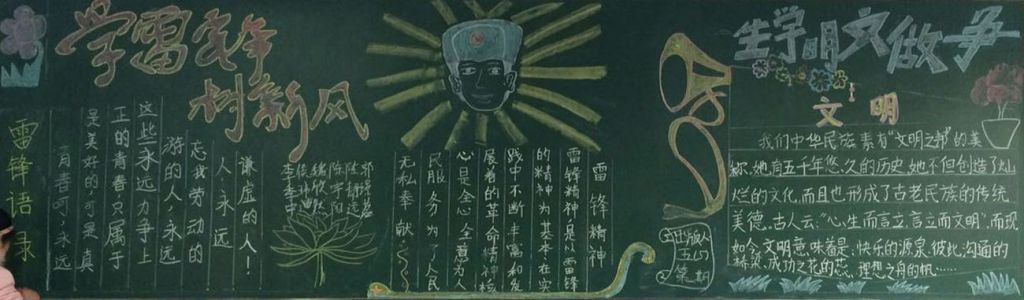 学雷锋
树新风
雷锋语录
青春呵,永远
是美好的可是真
正的青春只属于
这些永远力争上
游的人,永远
忘我劳动的
人,永远
谦虚的人!
雷锋精神
雷锋精神是以雷锋
的精神为基本在实
践中不断丰富和发
展着的革命精神核
心是全心全意为人
民服务为了人民
无私奉献
争做文明学生
文明
我们中华民族素有"文明之邦"的美
称,她有五千年悠久的历史,她不但创造了灿
烂的文化,而且也形成了古老民族的传统
美德。古人云:"心生而言立,言立而文明"而现
如今,文明意味着是快乐的源泉,彼此沟通的
桥梁,成功之花的蕊,理想之舟的帆……
出版人